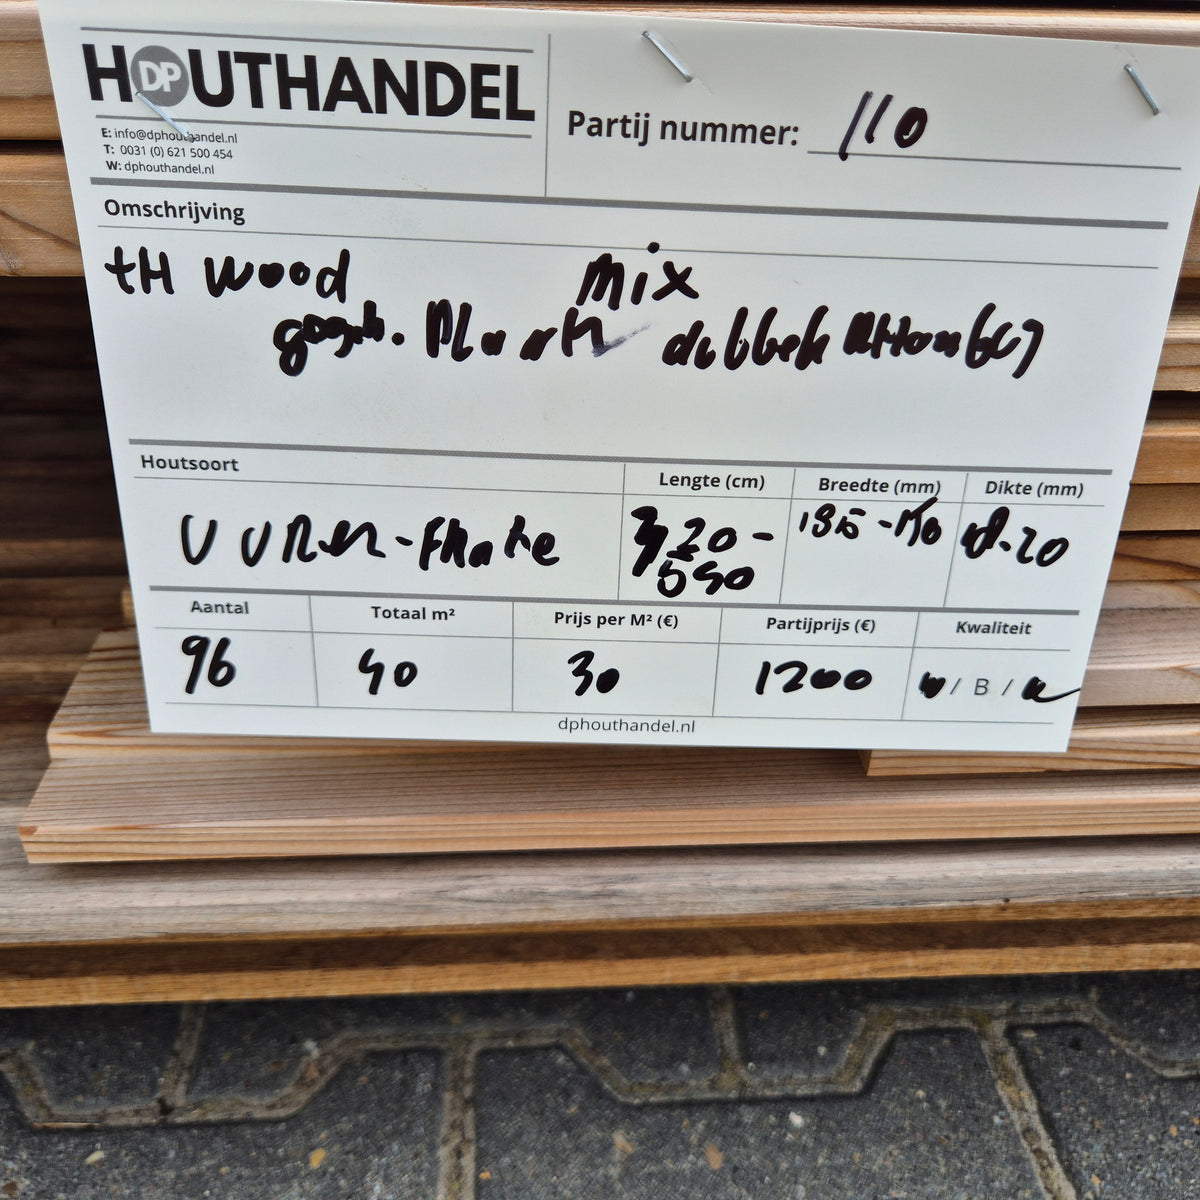 HOUTHANDEL
DP
E: info@dphouthandel.nl
T: 0031 (0) 621 500 454
W: dphouthandel.nl
Partij nummer: 110
Omschrijving
tH wood mix
Plank dubbel
Houtsoort
Lengte (cm)
Breedte (mm)
Dikte (mm)
VUREN-
320-
540
Aantal
Totaal m²
Prijs per M² (€)
Partijprijs (€)
Kwaliteit
96
40
30
1200
/ B /
dphouthandel.nl